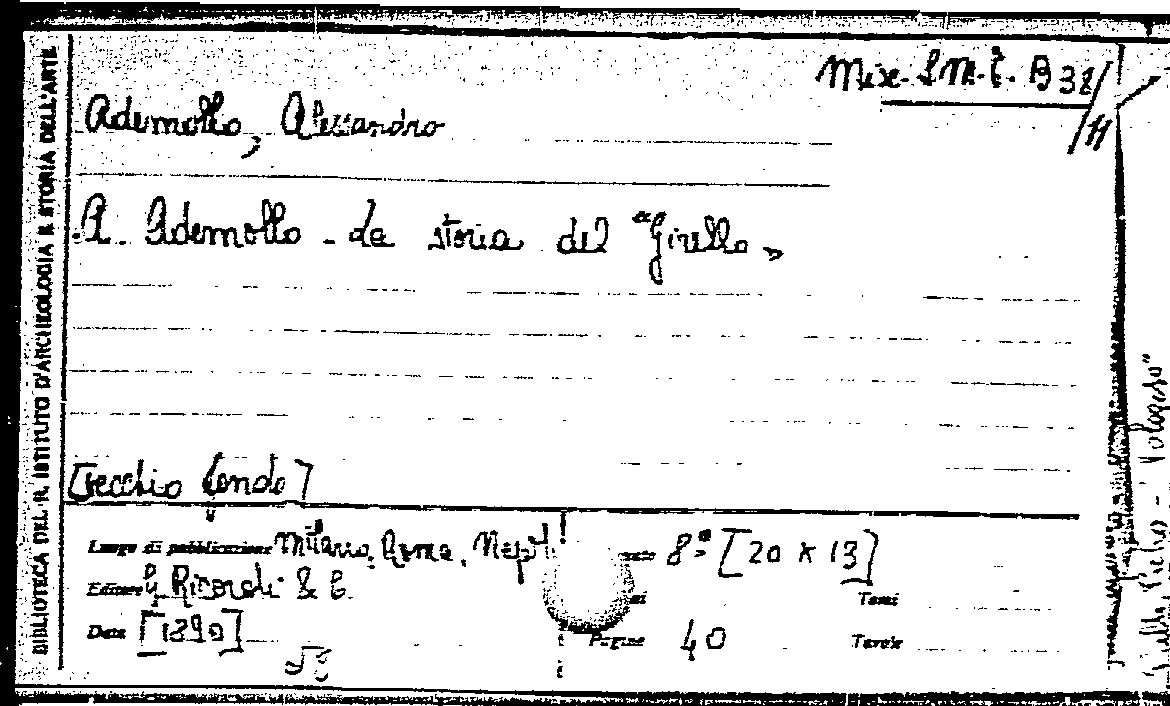 BIBLIOTECA DEL R. ISTITUTO D'ARCHEOLOGIA E STORIA DELL'ARTE
Misc. B 38/11
Ademollo, Alessandro
A. Ademollo - La storia del "Girello"
[Vecchio fondo]
Luogo di pubblicazione Milano, Roma, Nap 8° [20 x 13]
Editore G. Ricordi & C. Tomi
Data [1890] Pagine 40 Tavole